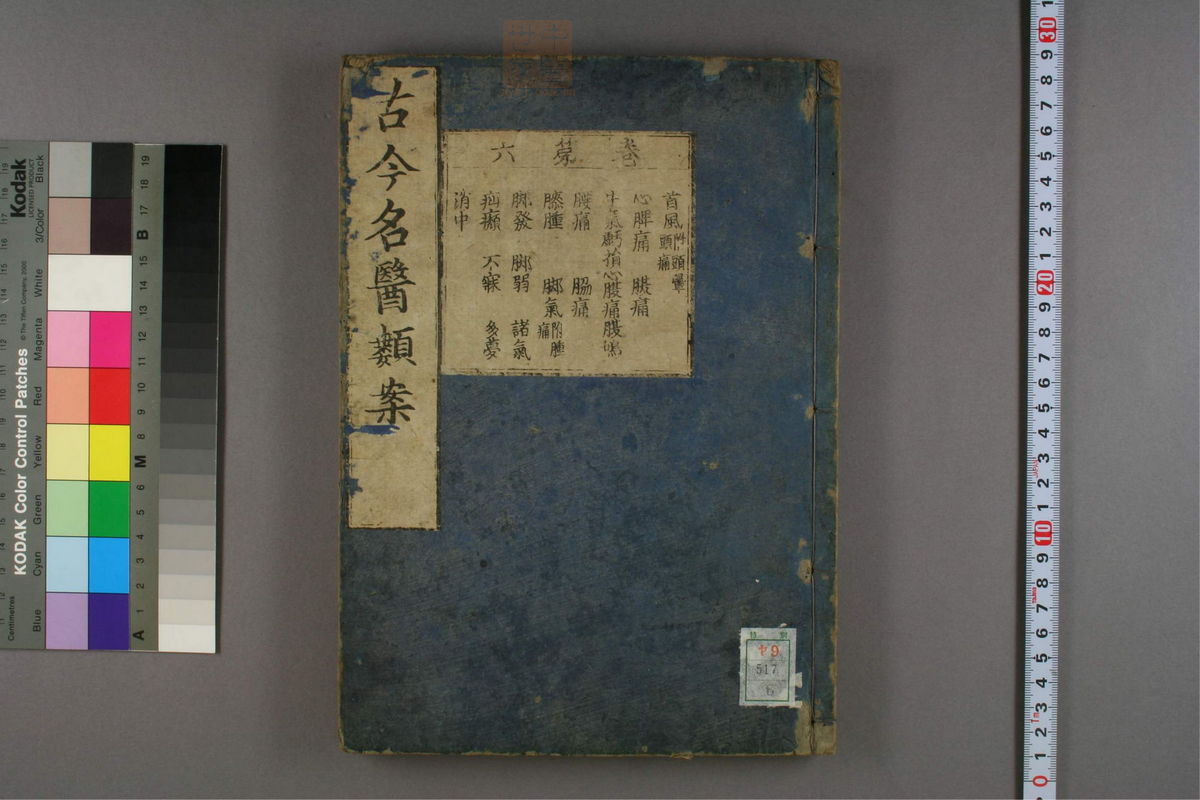 古今名醫類案
卷第六
首風附頭暈頭痛
心脾痛 腹痛
腰痛 脇痛
膝腫 脚氣附腫痛
脚發 脚弱 諸氣
疝㿗 不寐 多夢
消中
特別
ヤ9
517
6
KODAK Color Control Patches
Kodak
LICENSED PRODUCT
©The Tiffen Company, 2000
Centimetres
Blue Cyan Green Yellow Red Magenta White 3/Color Black
A 1 2 3 4 5 6 M 8 9 10 11 12 13 14 15 B 17 18 19
0 1 2 3 4 5 6 7 8 9 10 1 2 3 4 5 6 7 8 9 20 1 2 3 4 5 6 7 8 9 30 1